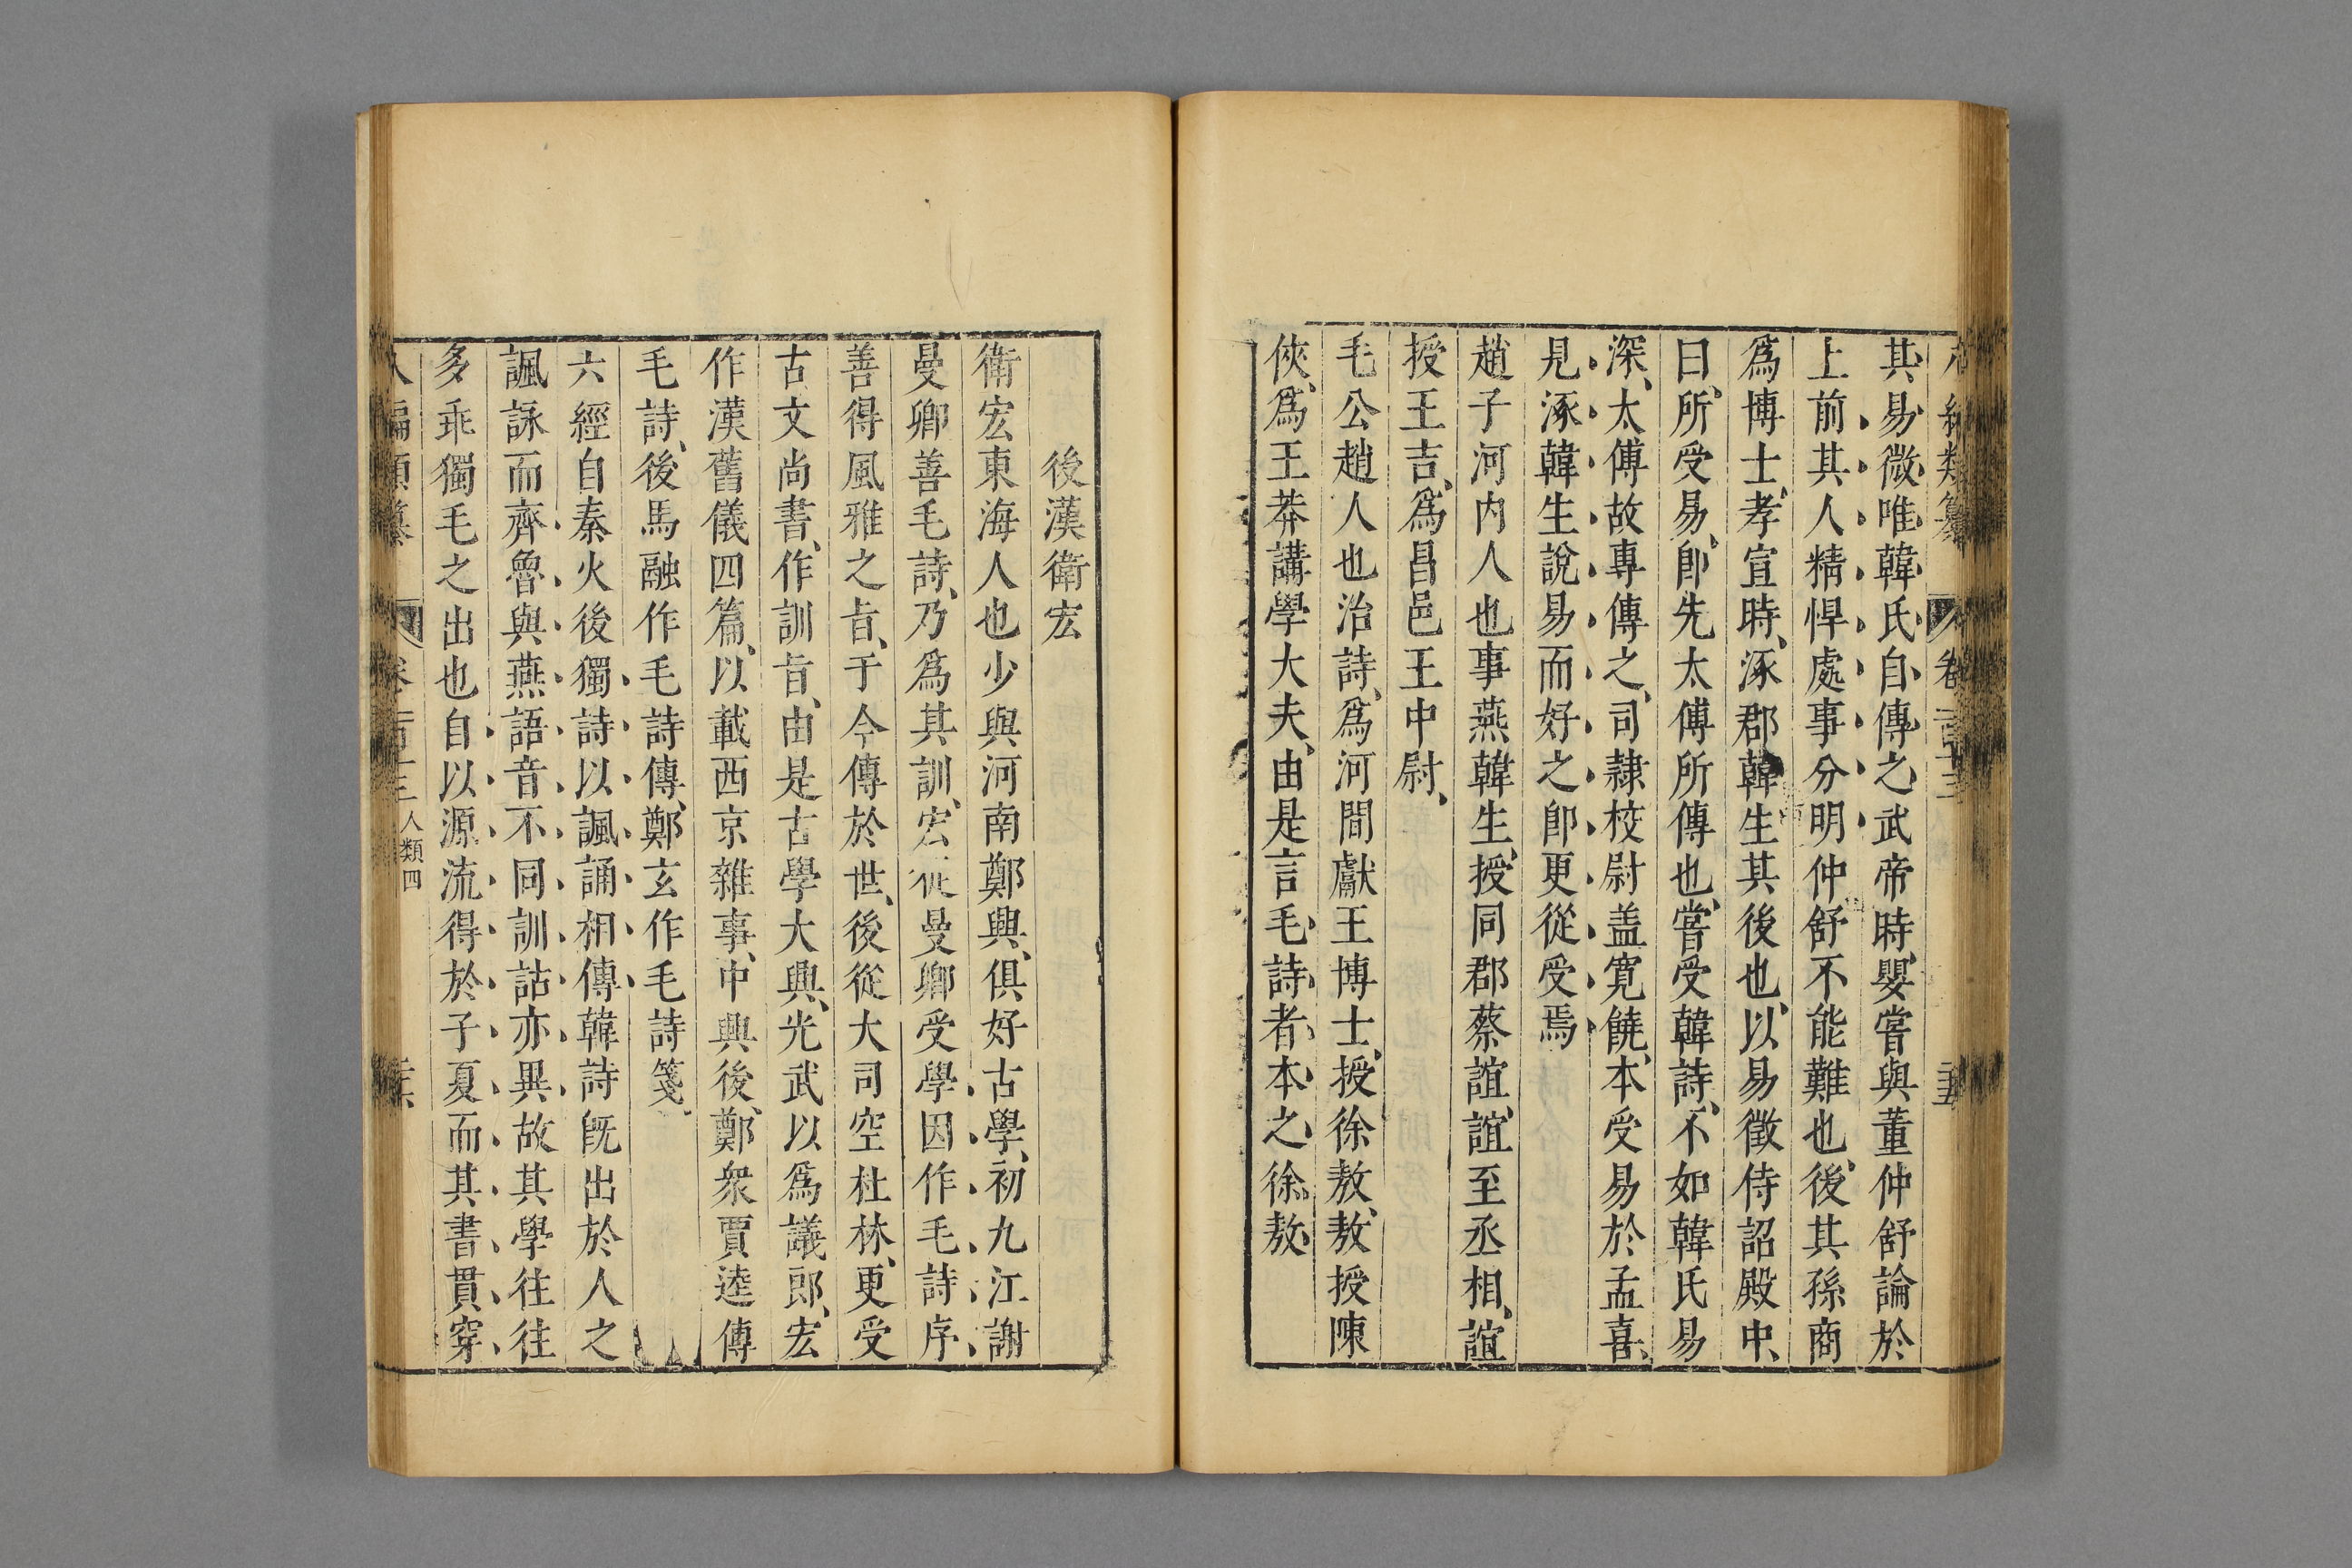 編類纂 卷 百十三 二十五
其易微唯韓氏自傳之武帝時嬰嘗與董仲舒論於
上前其人精悍處事分明仲舒不能難也後其孫商
爲博士孝宣時涿郡韓生其後也以易徵侍詔殿中
曰所受易卽先太傅所傳也嘗受韓詩不如韓氏易
深太傅故專傳之司隷校尉盖寛饒本受易於孟喜
見涿韓生說易而好之卽更從受焉
趙子河内人也事燕韓生授同郡蔡誼誼至丞相誼
授王吉爲昌邑王中尉
毛公趙人也治詩爲河間獻王博士授徐敖敖授陳
俠爲王莽講學大夫由是言毛詩者本之徐敖
後漢衛宏
衛宏東海人也少與河南鄭興俱好古學初九江謝
曼卿善毛詩乃爲其訓宏從曼卿受學因作毛詩序
善得風雅之旨于今傳於世後從大司空杜林更受
古文尚書作訓旨由是古學大興光武以爲議郎宏
作漢舊儀四篇以載西京雜事中興後鄭衆賈逵傳
毛詩後馬融作毛詩傳鄭玄作毛詩箋
六經自秦火後獨詩以諷誦相傳韓詩旣出於人之
諷詠而齊魯與燕語音不同訓詁亦異故其學往往
多乖獨毛之出也自以源流得於子夏而其書貫穿
編類纂 卷一百十三 人類四 二十六